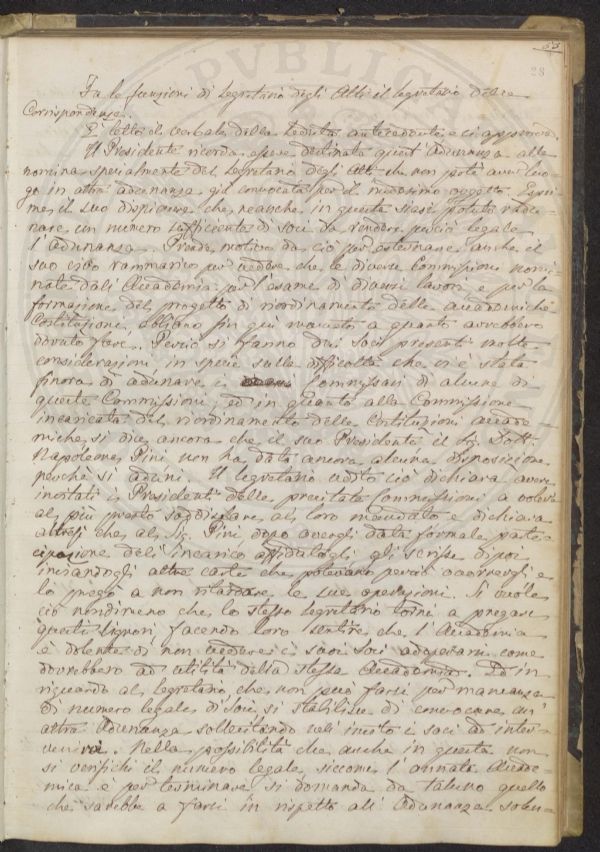 55
28
Fa le funzioni di Segretario degli Atti il Segretario della
Corrispondenza.
È letto il verbale della seduta antecedente e si approva.
Il Presidente ricorda essere destinata quest'adunanza alla
nomina specialmente del Segretario degli Atti che non potè aver luo-
go in altra adunanza già convocata per il medesimo oggetto. Espri-
me il suo dispiacere che neanche in questa siasi potuto radu-
nare un numero sufficiente di soci da rendere perciò legale
l'adunanza. Prende motivo da ciò per esternare anche il
suo vivo rammarico per vedere che le diverse Commissioni nomi-
nate dall'Accademia per l'esame di diversi lavori e per la
formazione del progetto di riordinamento delle accademiche
Costituzioni, abbiano fin quì mancato a quanto avrebbero
dovuto fare. Perciò si fanno dai soci presenti molte
considerazioni, in specie sulla difficoltà che vi è stata
finora di adunare i Commissari di alcune di
quelle Commissioni, ed in quanto alla Commissione
incaricata del riordinamento delle Costituzioni accade
miche si dice ancora che il suo Presidente il Sig. Dott.
Napoleone Pini non ha data ancora alcuna disposizione
perchè si aduni. Il Segretario udito ciò dichiara avere
invitati i Presidenti delle precitate Commissioni a volere
al più presto soddisfare al loro mandato e dichiara
altresì che al Sig. Pini dopo avergli data formale parte-
cipazione dell'incarico affidatogli gli scrisse dipoi
inviandogli altre carte che potevano perciò occorrergli e
lo pregò a non ritardare le sue operazioni. Si vuole
ciò nondimeno che lo stesso Segretario torni a pregare
questi Signori facendo loro sentire che l'Accademia
è dolente di non vedere i suoi soci adoperarsi come
dovrebbero ad utilità della stessa Accademia. Ed in
riguardo al Segretario che non può farsi per mancanza
di numero legale di soci, si stabilisce di convocare un'
altra Adunanza sollecitando nell'invito i soci ad inter-
venirvi. Nella possibilità che anche in questa non
si verifichi il numero legale, siccome l'annata Accade-
mica è per terminare si domanda da taluno quello
che sarebbe a farsi in rispetto all'Adunanza solen-